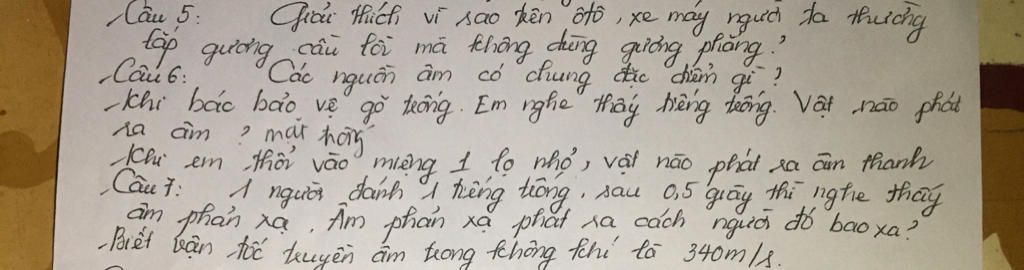 Câu 5: Giải thích vì sao trên ôtô, xe máy người ta thường
lắp gương cầu lồi mà không dùng gương phẳng?
Câu 6: Các nguồn âm có chung đặc điểm gì?
- Khi bác bảo vệ gõ trống. Em nghe thấy tiếng trống. Vật nào phát
ra âm? mặt trống
- Khi em thổi vào miệng 1 lọ nhỏ, vật nào phát ra âm thanh
Câu 7: 1 người đánh 1 tiếng trống, sau 0,5 giây thì nghe thấy
âm phản xạ. Âm phản xạ phát ra cách người đó bao xa?
- Biết vận tốc truyền âm trong không khí là 340m/s.